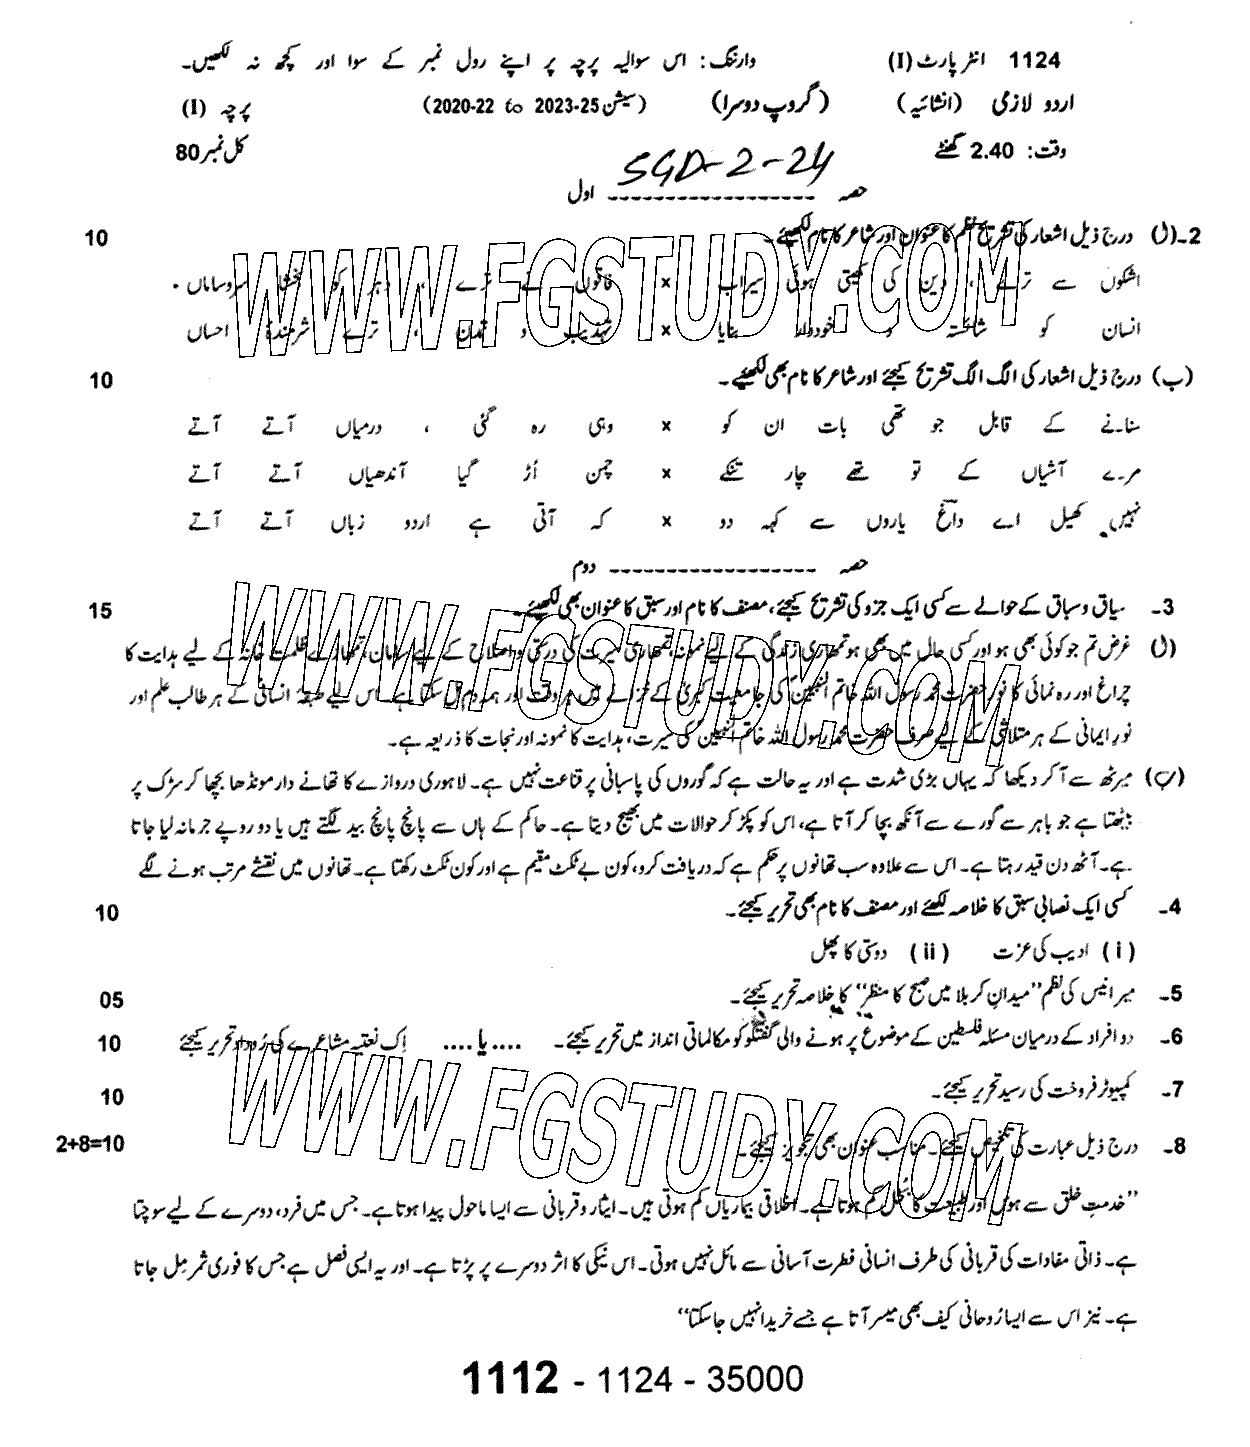 1124 انٹر پارٹ (I) وارننگ: اس سوالیہ پرچہ پر اپنے رول نمبر کے سوا اور کچھ نہ لکھیں۔
اردو لازمی (انشائیہ) (گروپ دوسرا) (سیشن 2020-22 to 2023-25) پرچہ (I)
وقت: 2.40 گھنٹے کل نمبر 80
SGD-2-24
حصہ ------------------ اول
2۔(ا) درج ذیل اشعار کی تشریح نظم کا عنوان اور شاعر کا نام لکھیئے۔ 10
اشکوں سے ترے ، دین کی کھیتی ہوئی سیراب x فاقوں نے ترے ، دہر کو بخشا سروساماں
انسان کو شائستہ و خوددار بنایا x تہذیب و تمدن ، ترے شرمندۂ احساں
(ب) درج ذیل اشعار کی الگ الگ تشریح کیجئے اور شاعر کا نام بھی لکھیئے۔ 10
سنانے کے قابل جو تھی بات ان کو x وہی رہ گئی ، درمیاں آتے آتے
مرے آشیاں کے تو تھے چار تنکے x چمن اُڑ گیا آندھیاں آتے آتے
نہیں کھیل اے داغؔ یاروں سے کہہ دو x کہ آتی ہے اردو زباں آتے آتے
حصہ ------------------ دوم
3۔ سیاق و سباق کے حوالے سے کسی ایک جزو کی تشریح کیجئے، مصنف کا نام اور سبق کا عنوان بھی لکھیئے۔ 15
(ا) غرض تم جو کوئی بھی ہو اور کسی حال میں بھی ہو تمھاری زندگی کے لیے نمونہ تمھاری سیرت کی درستی و اصلاح کے لیے سامان، تمھارے ظلمت خانہ کے لیے ہدایت کا
چراغ اور رہ نمائی کا نور حضرت محمد رسول اللہ خاتم النبیین کی جامعیت کبریٰ کے خزانے میں ہر وقت اور ہمہ دم مل سکتا ہے۔ اس لیے طبقۂ انسانی کے ہر طالب علم اور
نورِ ایمانی کے ہر متلاشی کے لیے صرف حضرت محمد رسول اللہ خاتم النبیین کی سیرت، ہدایت کا نمونہ اور نجات کا ذریعہ ہے۔
(ب) میرٹھ سے آ کر دیکھا کہ یہاں بڑی شدت ہے اور یہ حالت ہے کہ گوروں کی پاسبانی پر قناعت نہیں ہے۔ لاہوری دروازے کا تھانے دار مونڈھا بچھا کر سڑک پر
بیٹھتا ہے جو باہر سے گورے سے آنکھ بچا کر آتا ہے، اس کو پکڑ کر حوالات میں بھیج دیتا ہے۔ حاکم کے ہاں سے پانچ پانچ بید لگتے ہیں یا دو روپے جرمانہ لیا جاتا
ہے۔ آٹھ دن قید رہتا ہے۔ اس سے علاوہ سب تھانوں پر حکم ہے کہ دریافت کرو، کون بے ٹکٹ مقیم ہے اور کون ٹکٹ رکھتا ہے۔ تھانوں میں نقشے مرتب ہونے لگے
4۔ کسی ایک نصابی سبق کا خلاصہ لکھئے اور مصنف کا نام بھی تحریر کیجئے۔ 10
(i) ادیب کی عزت (ii) دوستی کا پھل
5۔ میر انیس کی نظم "میدانِ کربلا میں صبح کا منظر" کا خلاصہ تحریر کیجئے۔ 05
6۔ دو افراد کے درمیان مسئلہ فلسطین کے موضوع پر ہونے والی گفتگو کو مکالماتی انداز میں تحریر کیجئے۔ ....یا.... اِک نعتیہ مشاعرے کی رُوداد تحریر کیجئے 10
7۔ کمپیوٹر فروخت کی رسید تحریر کیجئے۔ 10
8۔ درج ذیل عبارت کی تلخیص کیجئے۔ مناسب عنوان بھی تجویز کیجئے۔ 2+8=10
"خدمتِ خلق سے ہوس اور طبیعت کا بُخل کم ہوتا ہے۔ اخلاقی بیماریاں کم ہوتی ہیں۔ ایثار و قربانی سے ایسا ماحول پیدا ہوتا ہے۔ جس میں فرد، دوسرے کے لیے سوچتا
ہے۔ ذاتی مفادات کی قربانی کی طرف انسانی فطرت آسانی سے مائل نہیں ہوتی۔ اس نیکی کا اثر دوسرے پر پڑتا ہے۔ اور یہ ایسی فصل ہے جس کا فوری ثمر مِل جاتا
ہے۔ نیز اس سے ایسا رُوحانی کیف بھی میسر آتا ہے جسے خریدا نہیں جا سکتا"
1112 - 1124 - 35000
WWW.FGSTUDY.COM
WWW.FGSTUDY.COM
WWW.FGSTUDY.COM